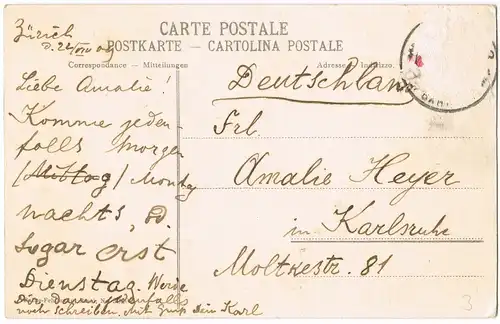 CARTE POSTALE
POSTKARTE - CARTOLINA POSTALE
Correspondance — Mitteilungen
Adresse — Indirizzo.
Zürich
d. 22/VIII 09
Liebe Amalie!
Komme jeden-
falls morgen
/Mittag/ Montag
nachts,
sogar erst
Dienstag. Werde
Dir dann jedenfalls
noch schreiben. Mit Gruß Dein Karl
Deutschland
Frl.
Amalie Heyer
in Karlsruhe
Moltkestr. 81
3